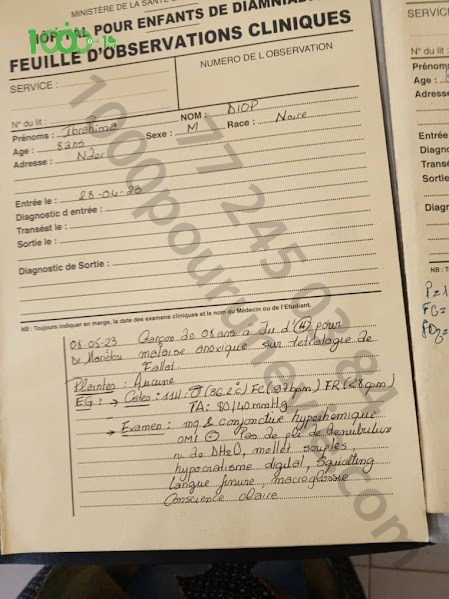 MINISTÈRE DE LA SANTÉ
HOPITAL POUR ENFANTS DE DIAMNIADIO
FEUILLE D'OBSERVATIONS CLINIQUES
SERVICE :
NUMERO DE L'OBSERVATION
N° du lit :
NOM : DIOP
Prénoms : Ibrahima
Sexe : M Race : Noire
Age : 8 ans
Adresse : Ndar
Entrée le : 28-04-23
Diagnostic d entrée :
Transéat le :
Sortie le :
Diagnostic de Sortie :
NB : Toujours indiquer en marge, la date des examens cliniques et le nom du Médecin ou de l'Etudiant.
08-05-23 Garçon de 08 ans à J11 d'(H) pour
Dr Mariétou malaise anoxique sur tétralogie de
Fallot
Plaintes : Aucune
EG : → Cstes : 11H : (36,2°c) FC( bpm) FR (28cpm)
TA : 80/40 mmHg
→ Examen : mq & conjonctive hyperhémique
OMI ⊖ Pas de pli de denutrution
ni de DH2O, mollet souples
hypocratisme digital, Squatting
Langue, macroglossie
Conscience claire
SERVICE
N° du lit :
Prénoms
Age :
Adresse
Entrée
Diagno
Transéa
Sortie
Diagn
NB : T
FC=
77 245 03 84
1000pourunevie.com